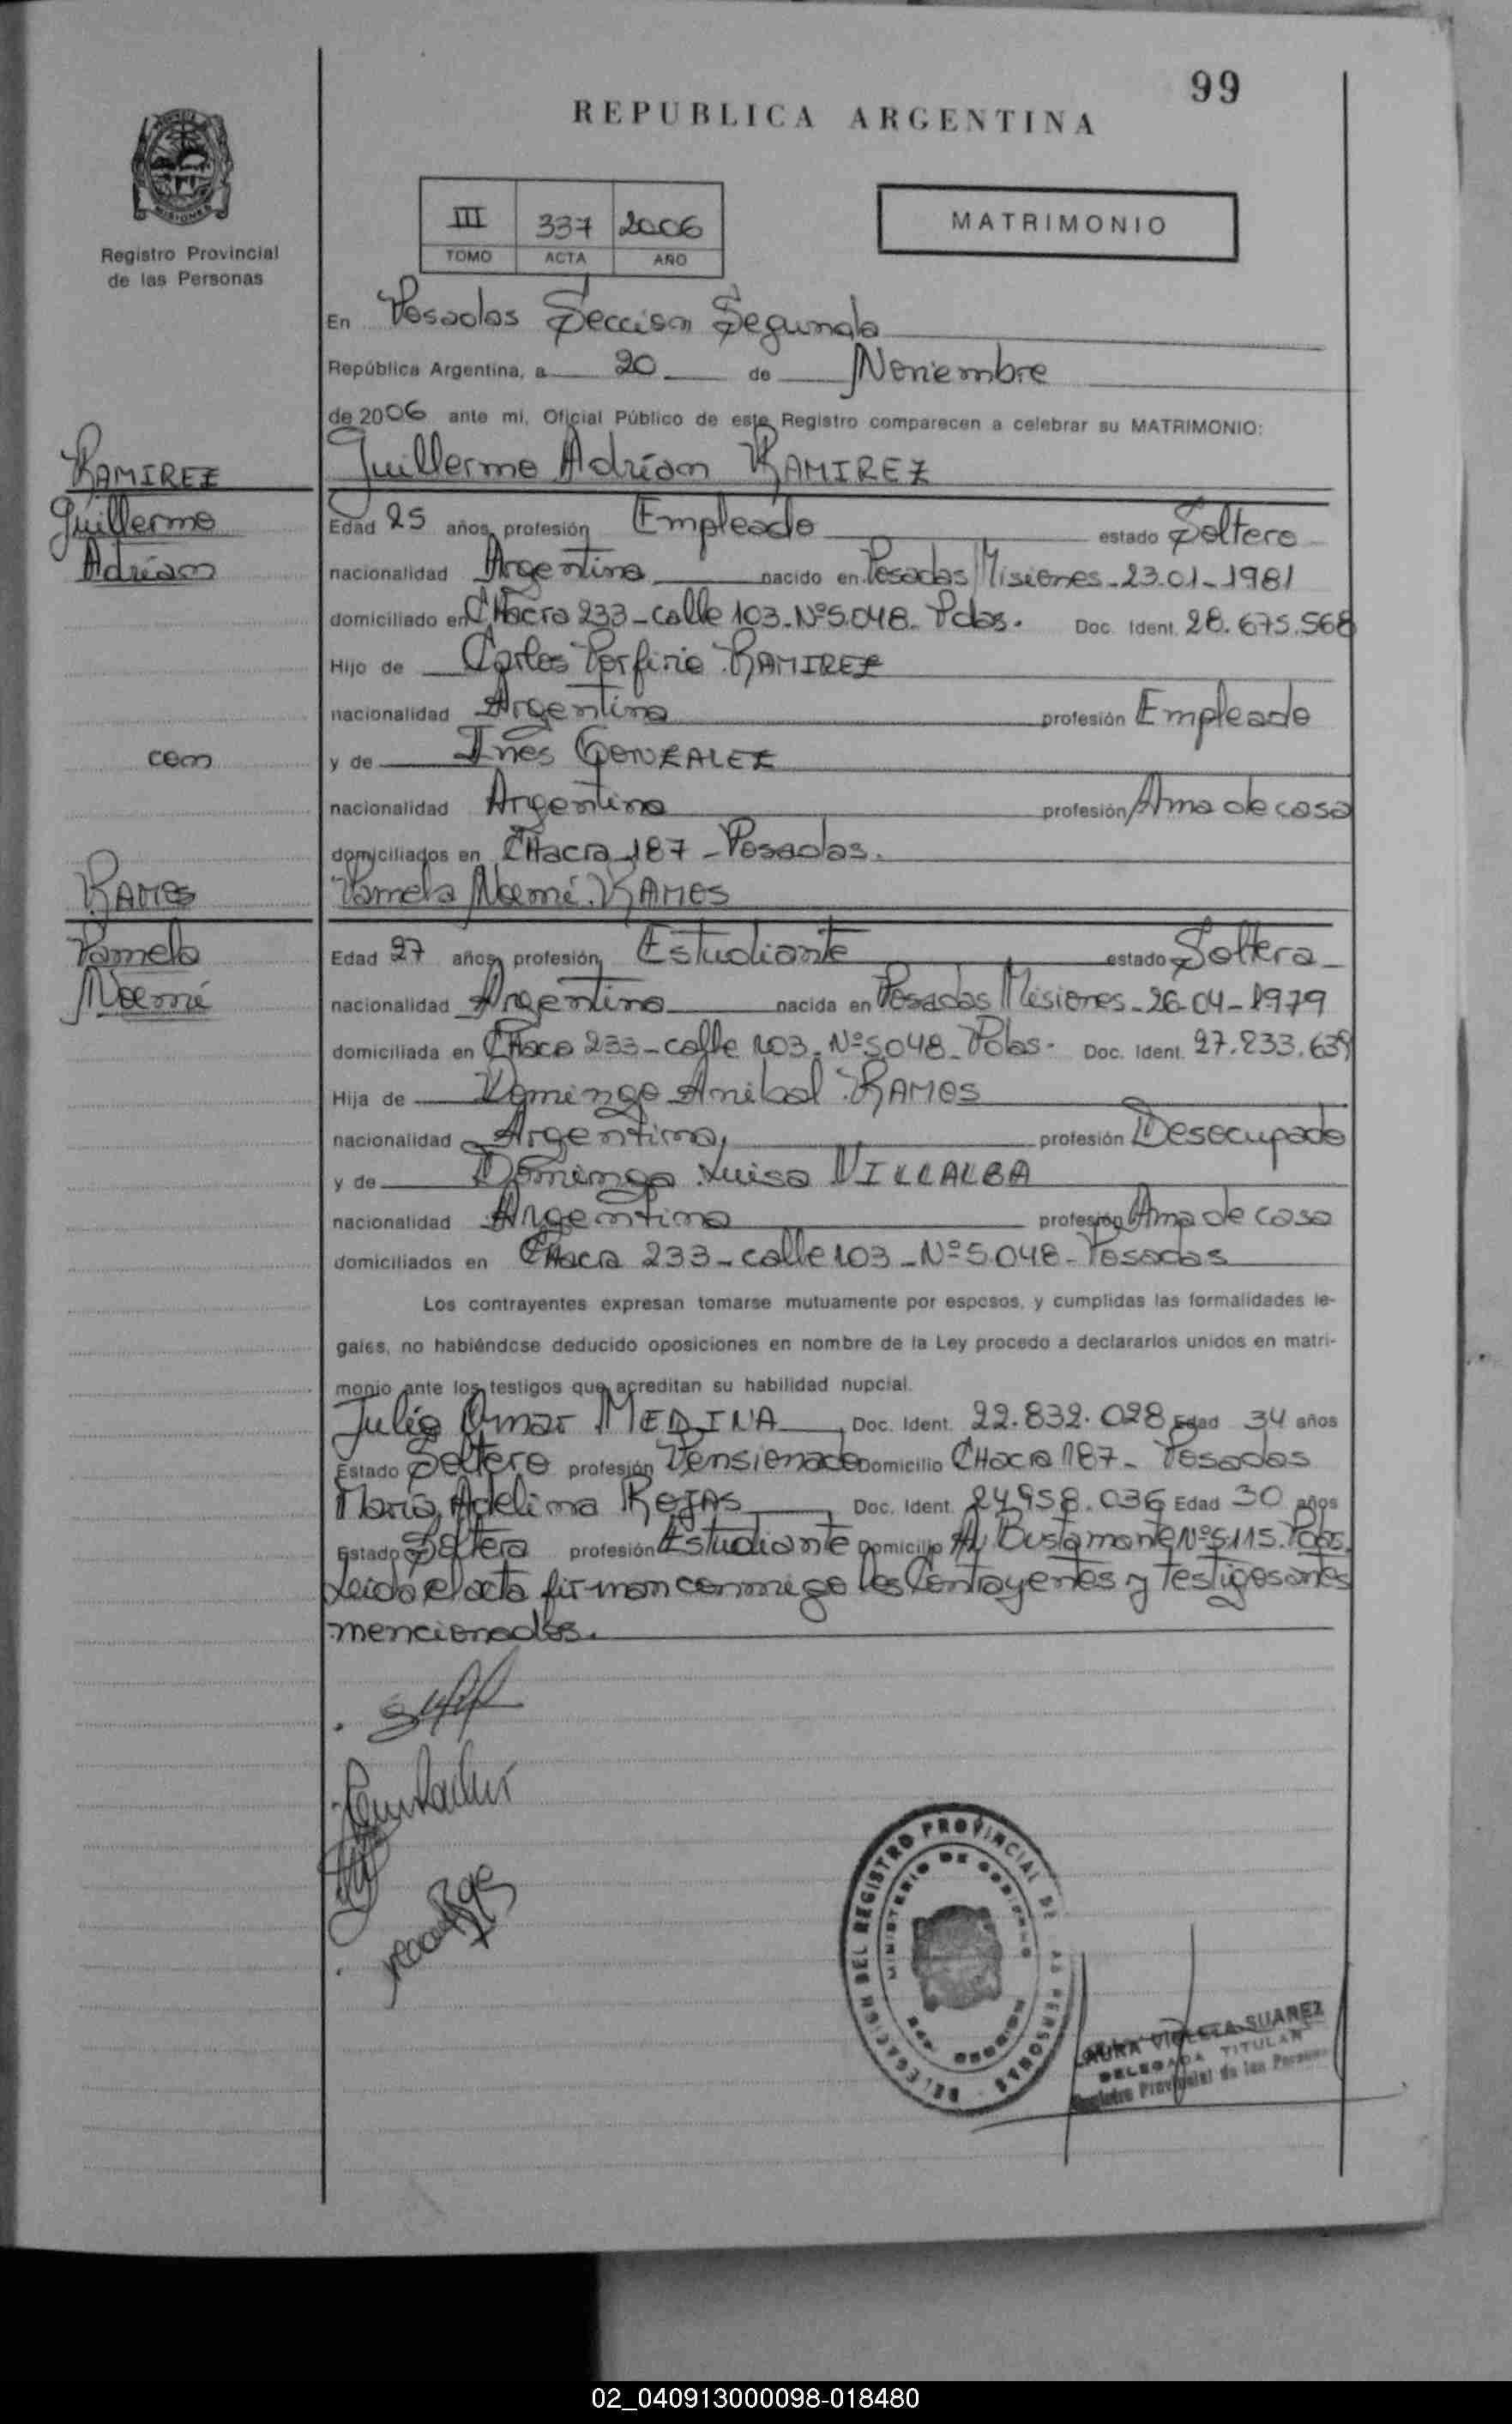 99
REPUBLICA ARGENTINA
MISIONES
Registro Provincial
de las Personas
III 337 2006
TOMO ACTA AÑO
MATRIMONIO
En Posadas Seccion Segunda
República Argentina, a 20 de Noviembre
de 2006 ante mi, Oficial Público de este Registro comparecen a celebrar su MATRIMONIO:
RAMIREZ
Guillermo
Adrían
con
RAMOS
Pamela
Noemí
Guillermo Adrían RAMIREZ
Edad 25 años, profesión Empleado estado Soltero
nacionalidad Argentina nacido en Posadas Misiones - 23-01-1981
domiciliado en CHacra 233 - calle 103 - Nº 5.048 - Pdas. Doc. Ident. 28.675.568
Hijo de Carlos Porfirio RAMIREZ
nacionalidad Argentina profesión Empleado
y de Ines GONZALEZ
nacionalidad Argentina profesión Ama de casa
domiciliados en CHacra 187 - Posadas.
Pamela Noemí RAMOS
Edad 27 años, profesión Estudiante estado Soltera
nacionalidad Argentina nacida en Posadas Misiones - 26-04-1979
domiciliada en 233 - calle 103 - Nº 5.048 - Pdas. Doc. Ident. 27.233.639
Hija de Domingo Anibal RAMOS
nacionalidad Argentina, profesión Desocupado
y de Dominga Luisa VILLALBA
nacionalidad Argentina profesión Ama de casa
domiciliados en CHacra 233 - calle 103 - Nº 5.048 - Posadas
Los contrayentes expresan tomarse mutuamente por esposos, y cumplidas las formalidades le-
gales, no habiéndose deducido oposiciones en nombre de la Ley procedo a declararlos unidos en matri-
monio ante los testigos que acreditan su habilidad nupcial.
Julio Omar MEDINA, Doc. Ident. 22.832.028 Edad 34 años
Estado Soltero profesión Pensionado Domicilio CHacra 187 - Posadas
María Adelina ROJAS, Doc. Ident. 24.958.036 Edad 30 años
Estado Soltera profesión Estudiante Domicilio Av. Bustamante Nº 5.115. Pdas.
Leida el acta firman conmigo los Contrayentes y Testigos antes
mencionados.
DELEGACION DEL REGISTRO PROVINCIAL DE LAS PERSONAS
MINISTERIO DE GOBIERNO
LAURA VIOLETA SUAREZ
DELEGADA TITULAR
Registro Provincial de las Personas
02_040913000098-018480